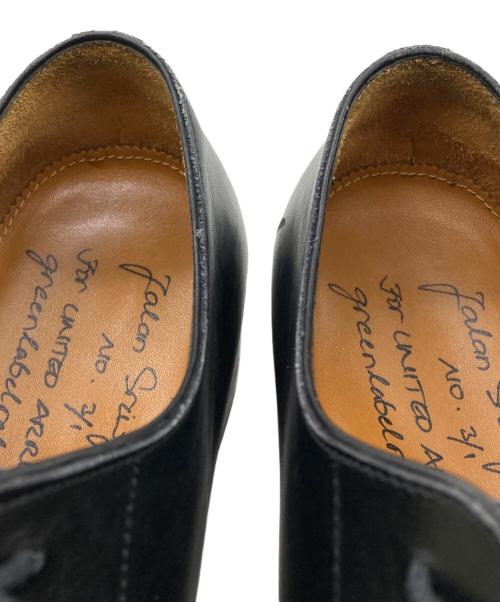 Jalan Sri
No. 3/1
For UNITED ARR
greenlabel
Jalan S
No. 3/1
For UNITED A
greenlabel